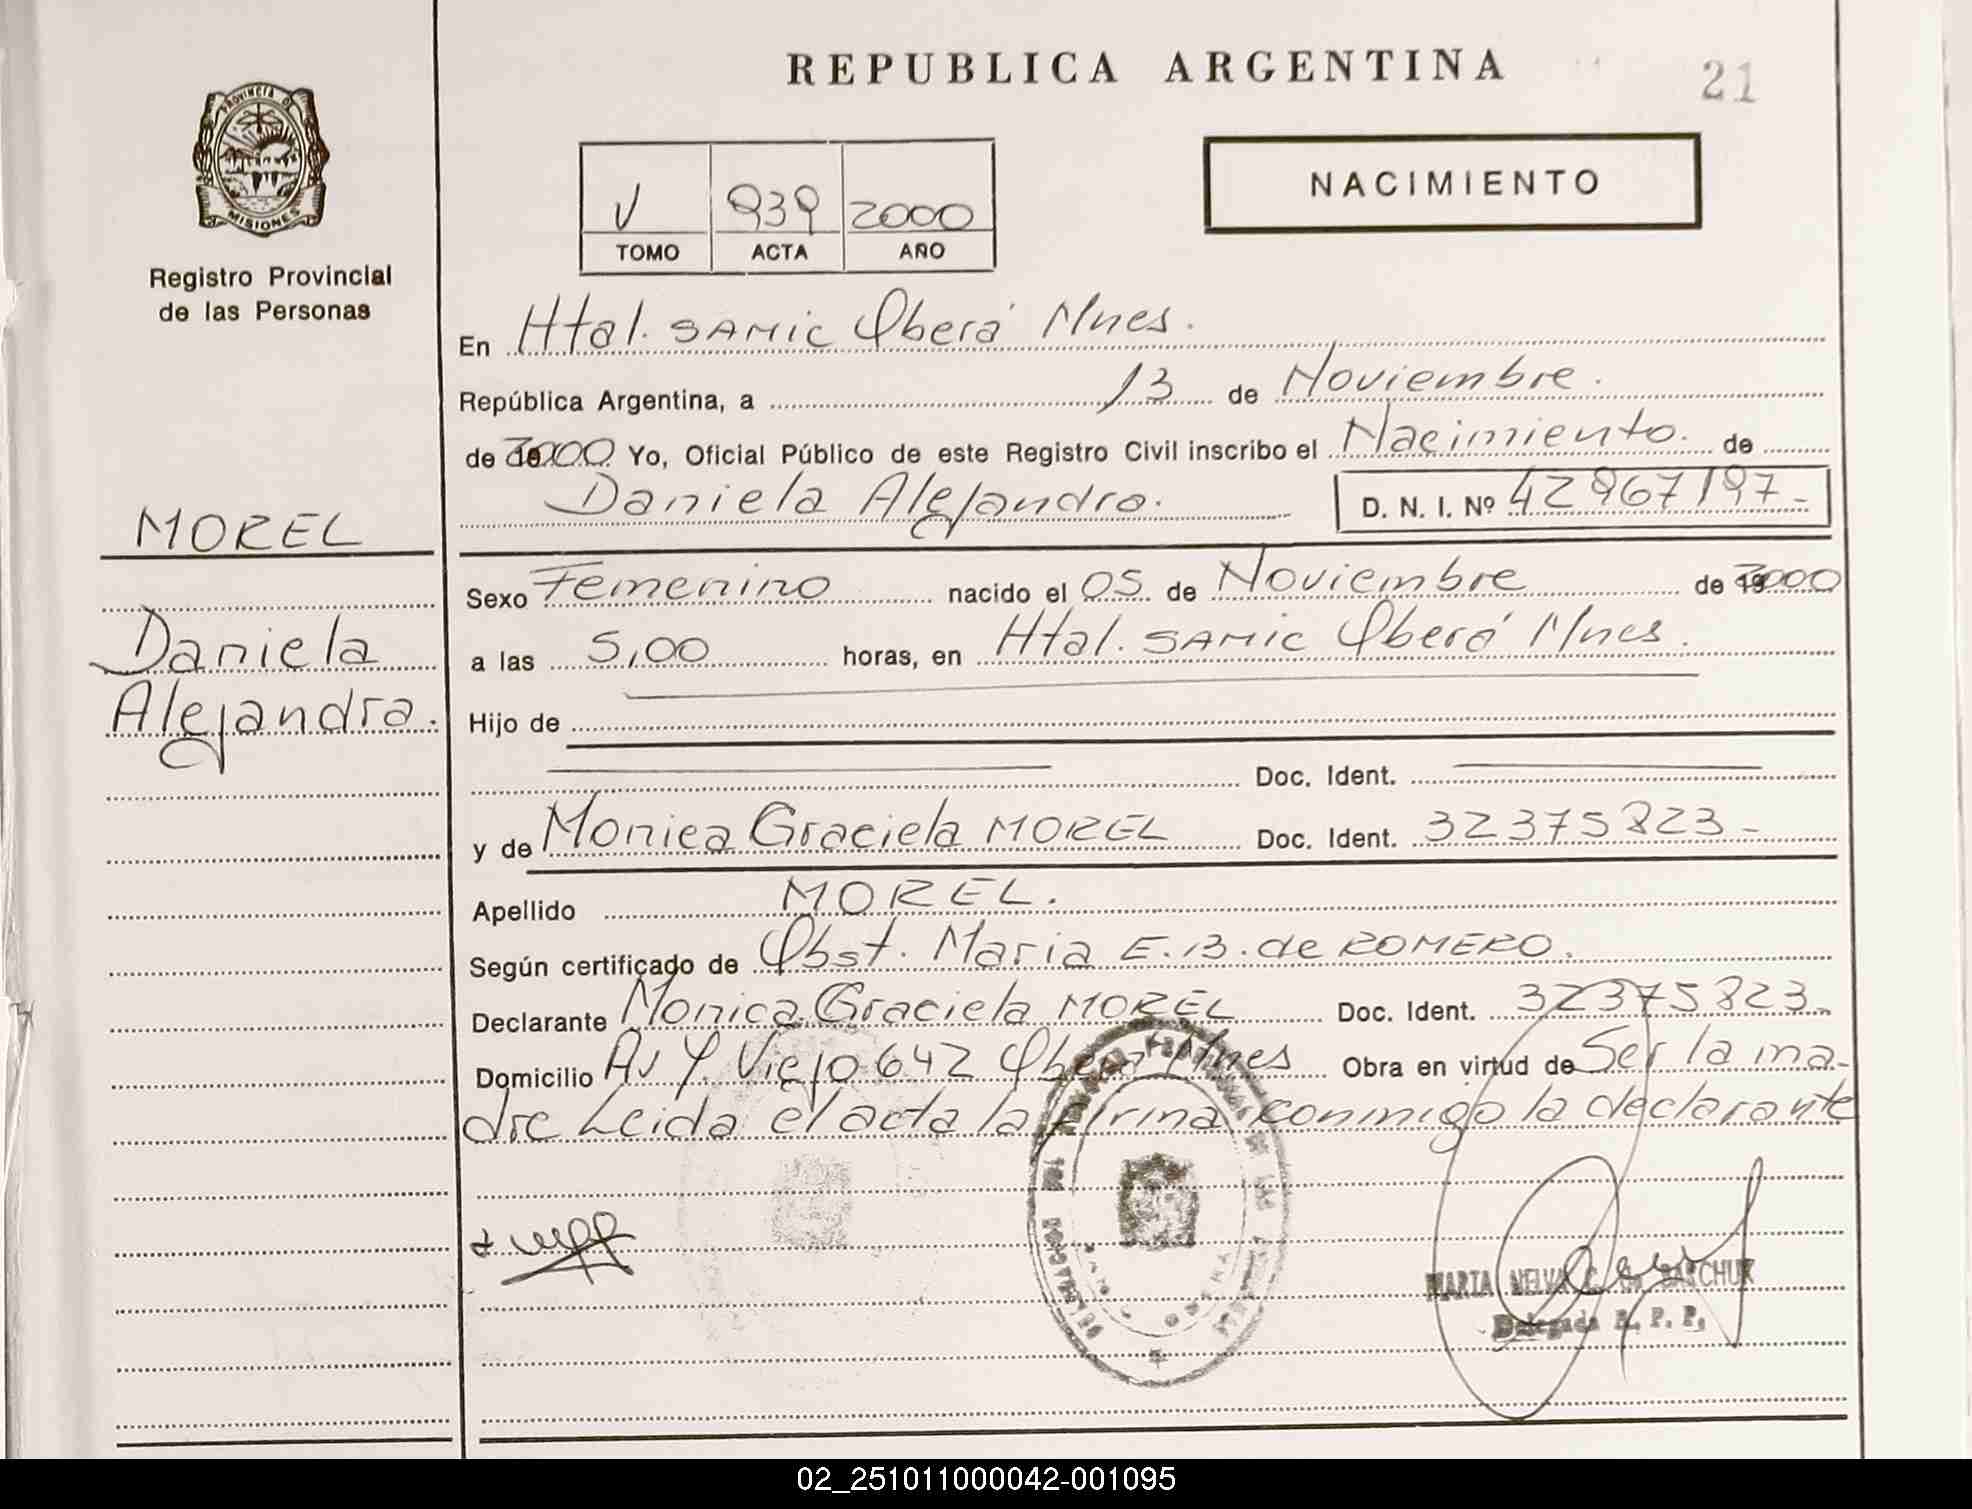 REPUBLICA ARGENTINA
21
PROVINCIA DE
MISIONES
Registro Provincial
de las Personas
V 939 2000
TOMO ACTA AÑO
NACIMIENTO
En Htal. SAMIC Oberá Mnes.
República Argentina, a 13 de Noviembre.
de 2000 Yo, Oficial Público de este Registro Civil inscribo el Nacimiento. de
Daniela Alejandra. D. N. I. Nº 42967197-
MOREL
Daniela
Alejandra.
Sexo Femenino nacido el 05 de Noviembre de 2000
a las 5,00 horas, en Htal. SAMIC Oberá Mnes.
Hijo de
Doc. Ident.
y de Monica Graciela MOREL Doc. Ident. 32375823-
Apellido MOREL.
Según certificado de Obst. Maria E.B. de ROMERO.
Declarante Monica Graciela MOREL Doc. Ident. 32375823-
Domicilio Av Y. Viejo 642 Oberá Mnes Obra en virtud de Ser la ma-
dre Leida el acta la firma conmigo la declarante
MARTA NELVA C.
Delegada R. P. P.
02_251011000042-001095